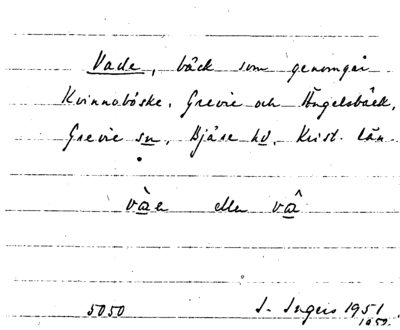 Vade, bäck som genomgår
Kvinnaböske, Grevie och Ängelsbäck,
Grevie sn, Bjäre hd, Krist. län.
vàe eller vâ
5050 I. Ingers 1951
1952.